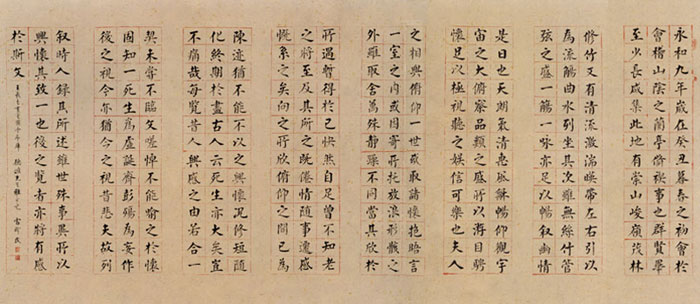 永和九年歲在癸丑暮春之初會於
會稽山陰之蘭亭脩禊事也群賢畢
至少長咸集此地有崇山峻嶺茂林
修竹又有清流激湍暎帶左右引以
為流觴曲水列坐其次雖無絲竹管
弦之盛一觴一詠亦足以暢叙幽情
是日也天朗氣清惠風龢暢仰觀宇
宙之大俯察品類之盛所以游目騁
懷足以極視聽之娛信可樂也夫人
之相與俯仰一世或取諸懷抱晤言
一室之內或因寄所托放浪形骸之
外雖取舍萬殊靜躁不同當其欣於
所遇暫得於己快然自足曾不知老
之將至及其所之既倦情隨事遷感
慨系之矣向之所欣俯仰之間已為
陳迹猶不能不以之興懷況修短隨
化終期於盡古人云死生亦大矣豈
不痛哉每覽昔人興感之由若合一
契未嘗不臨文嗟悼不能喻之於懷
固知一死生為虛誕齊彭殤為妄作
後之視今亦猶今之視昔悲夫故列
叙時人錄其所述雖世殊事異所以
興懷其致一也後之覽者亦將有感
於斯文